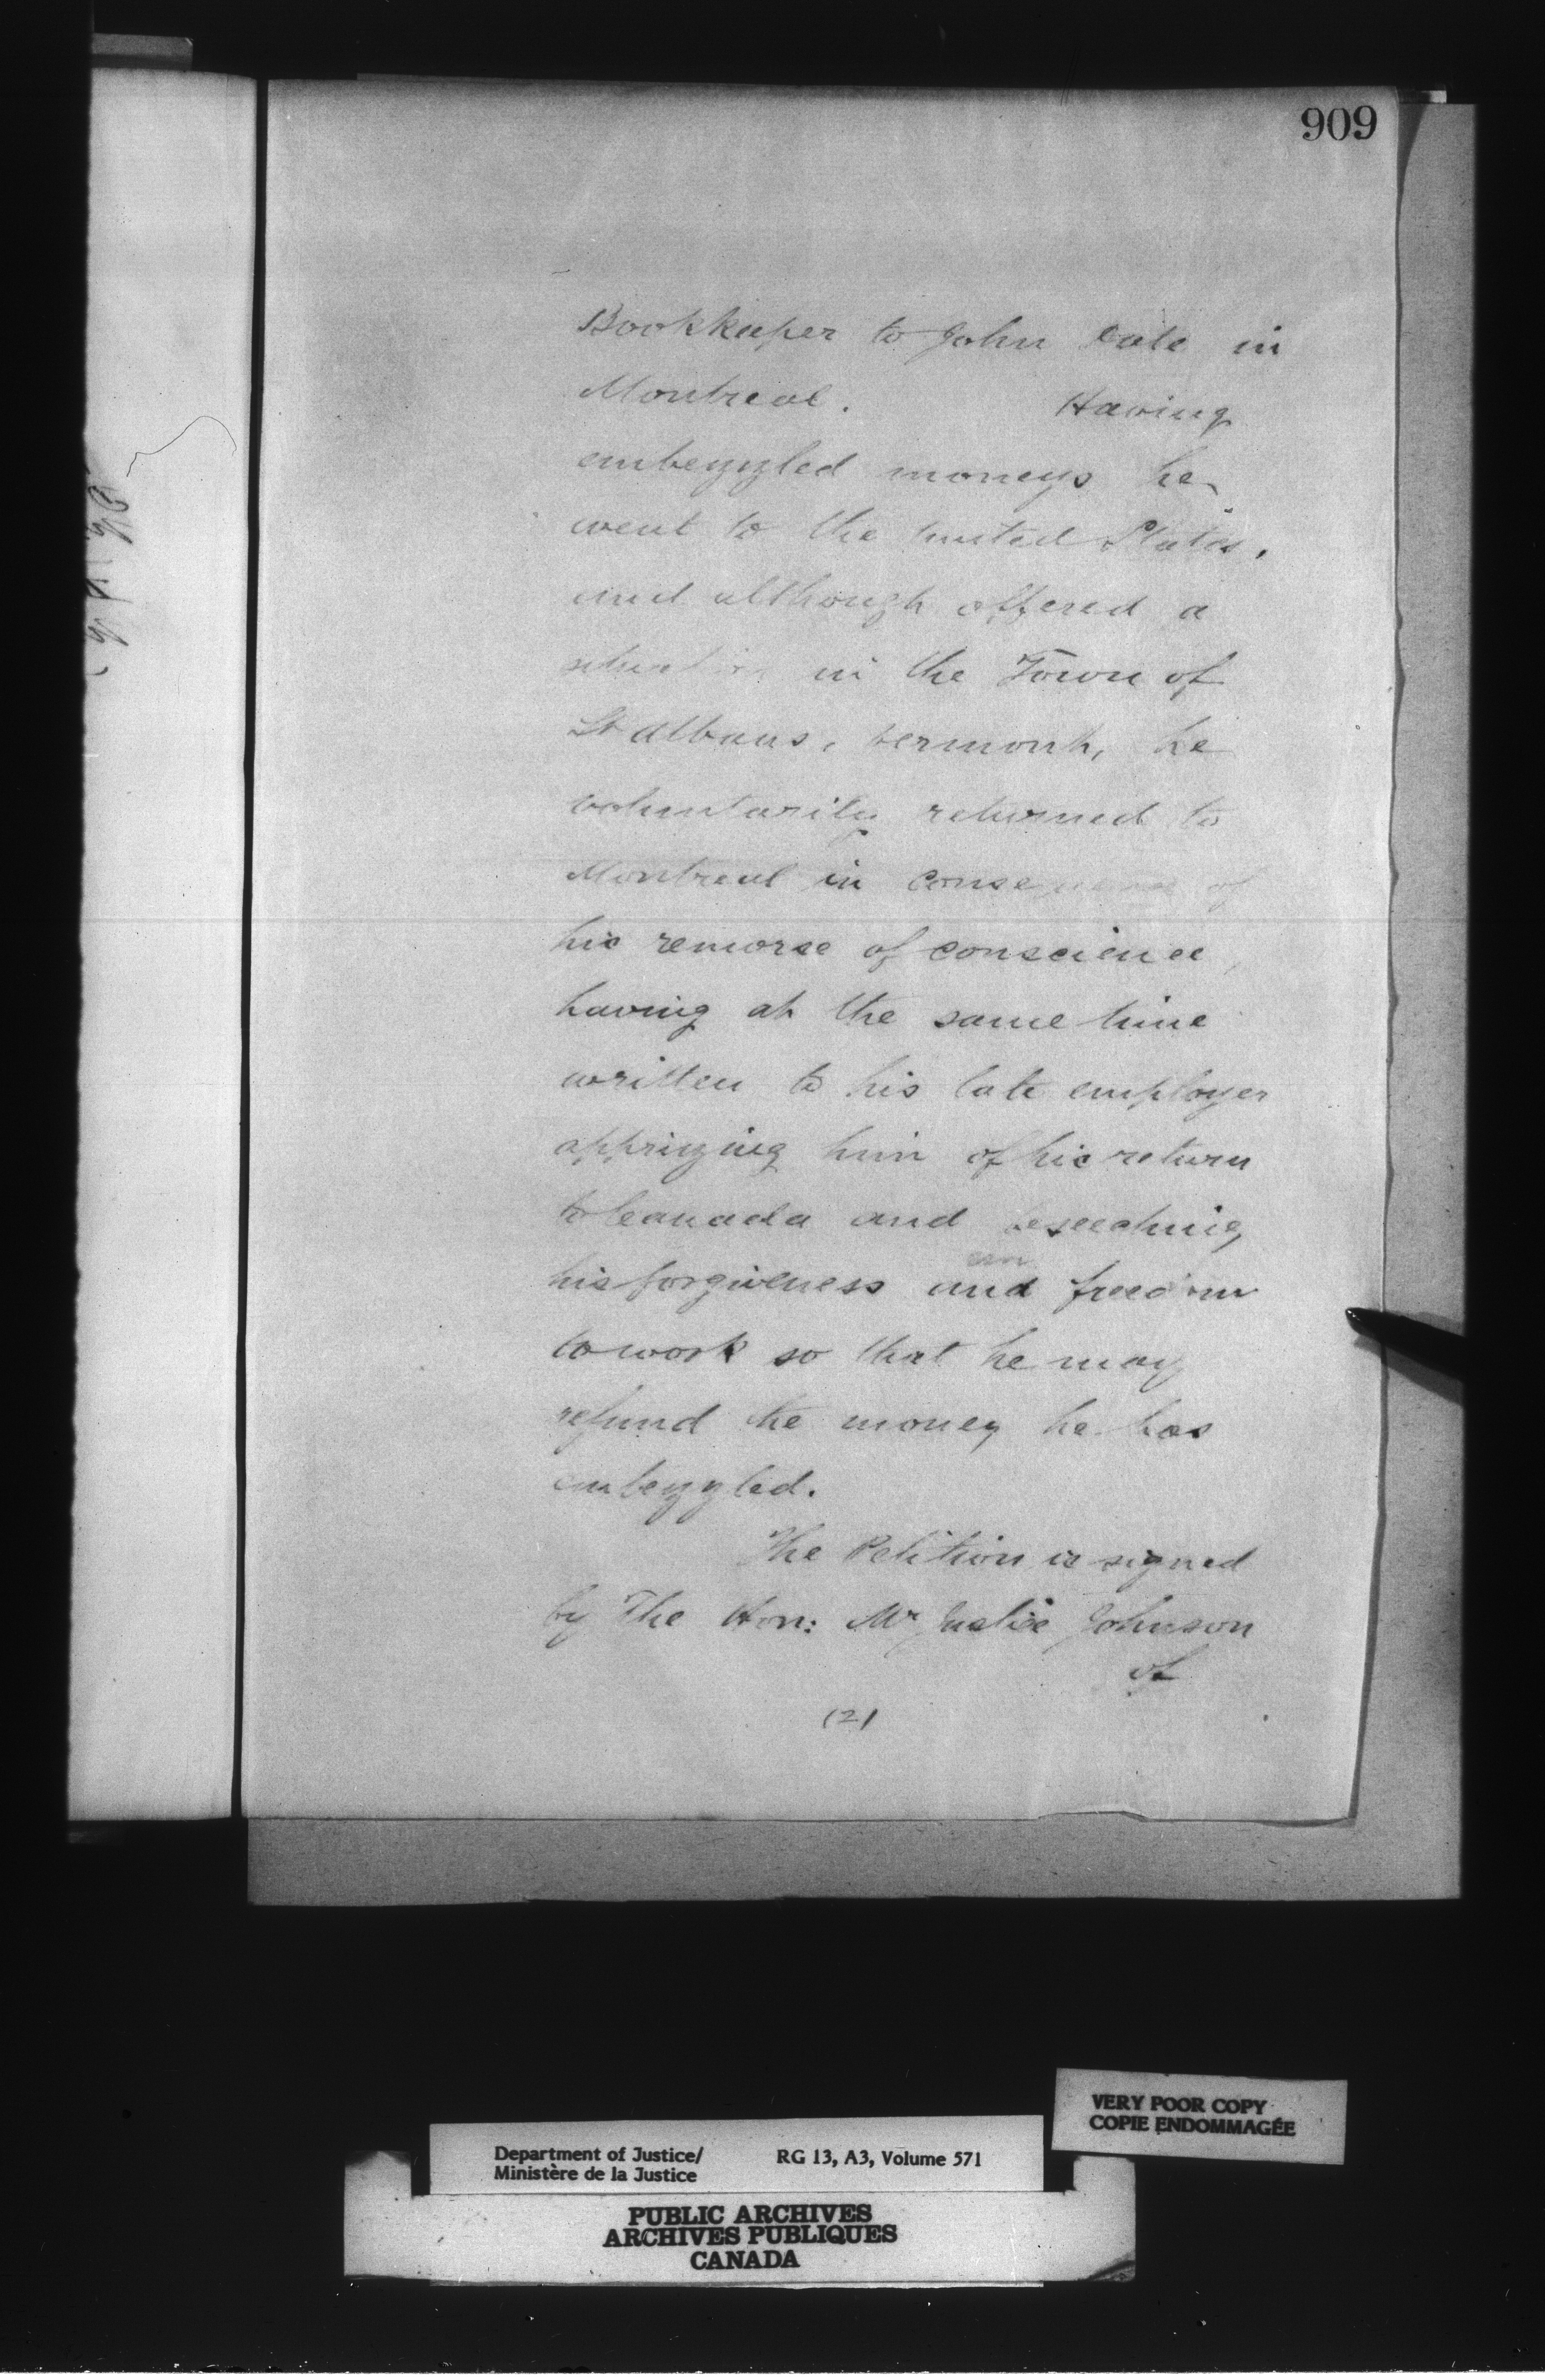 909
Bookkeeper to John Date in
Montreal. Having
embezzled moneys he
went to the United States,
and although offered a
situation in the Town of
St Albans, Vermont, he
voluntarily returned to
Montreal in consequence of
his remorse of conscience,
having at the same time
written to his late employer
apprizing him of his return
to Canada and beseeching
his forgiveness and freedom
to work so that he may
refund the money he has
embezzled.
The Petition is signed
by The Hon: Mr Justice Johnson
of
(2)
VERY POOR COPY
COPIE ENDOMMAGÉE
Department of Justice/ RG 13, A3, Volume 571
Ministère de la Justice
PUBLIC ARCHIVES
ARCHIVES PUBLIQUES
CANADA